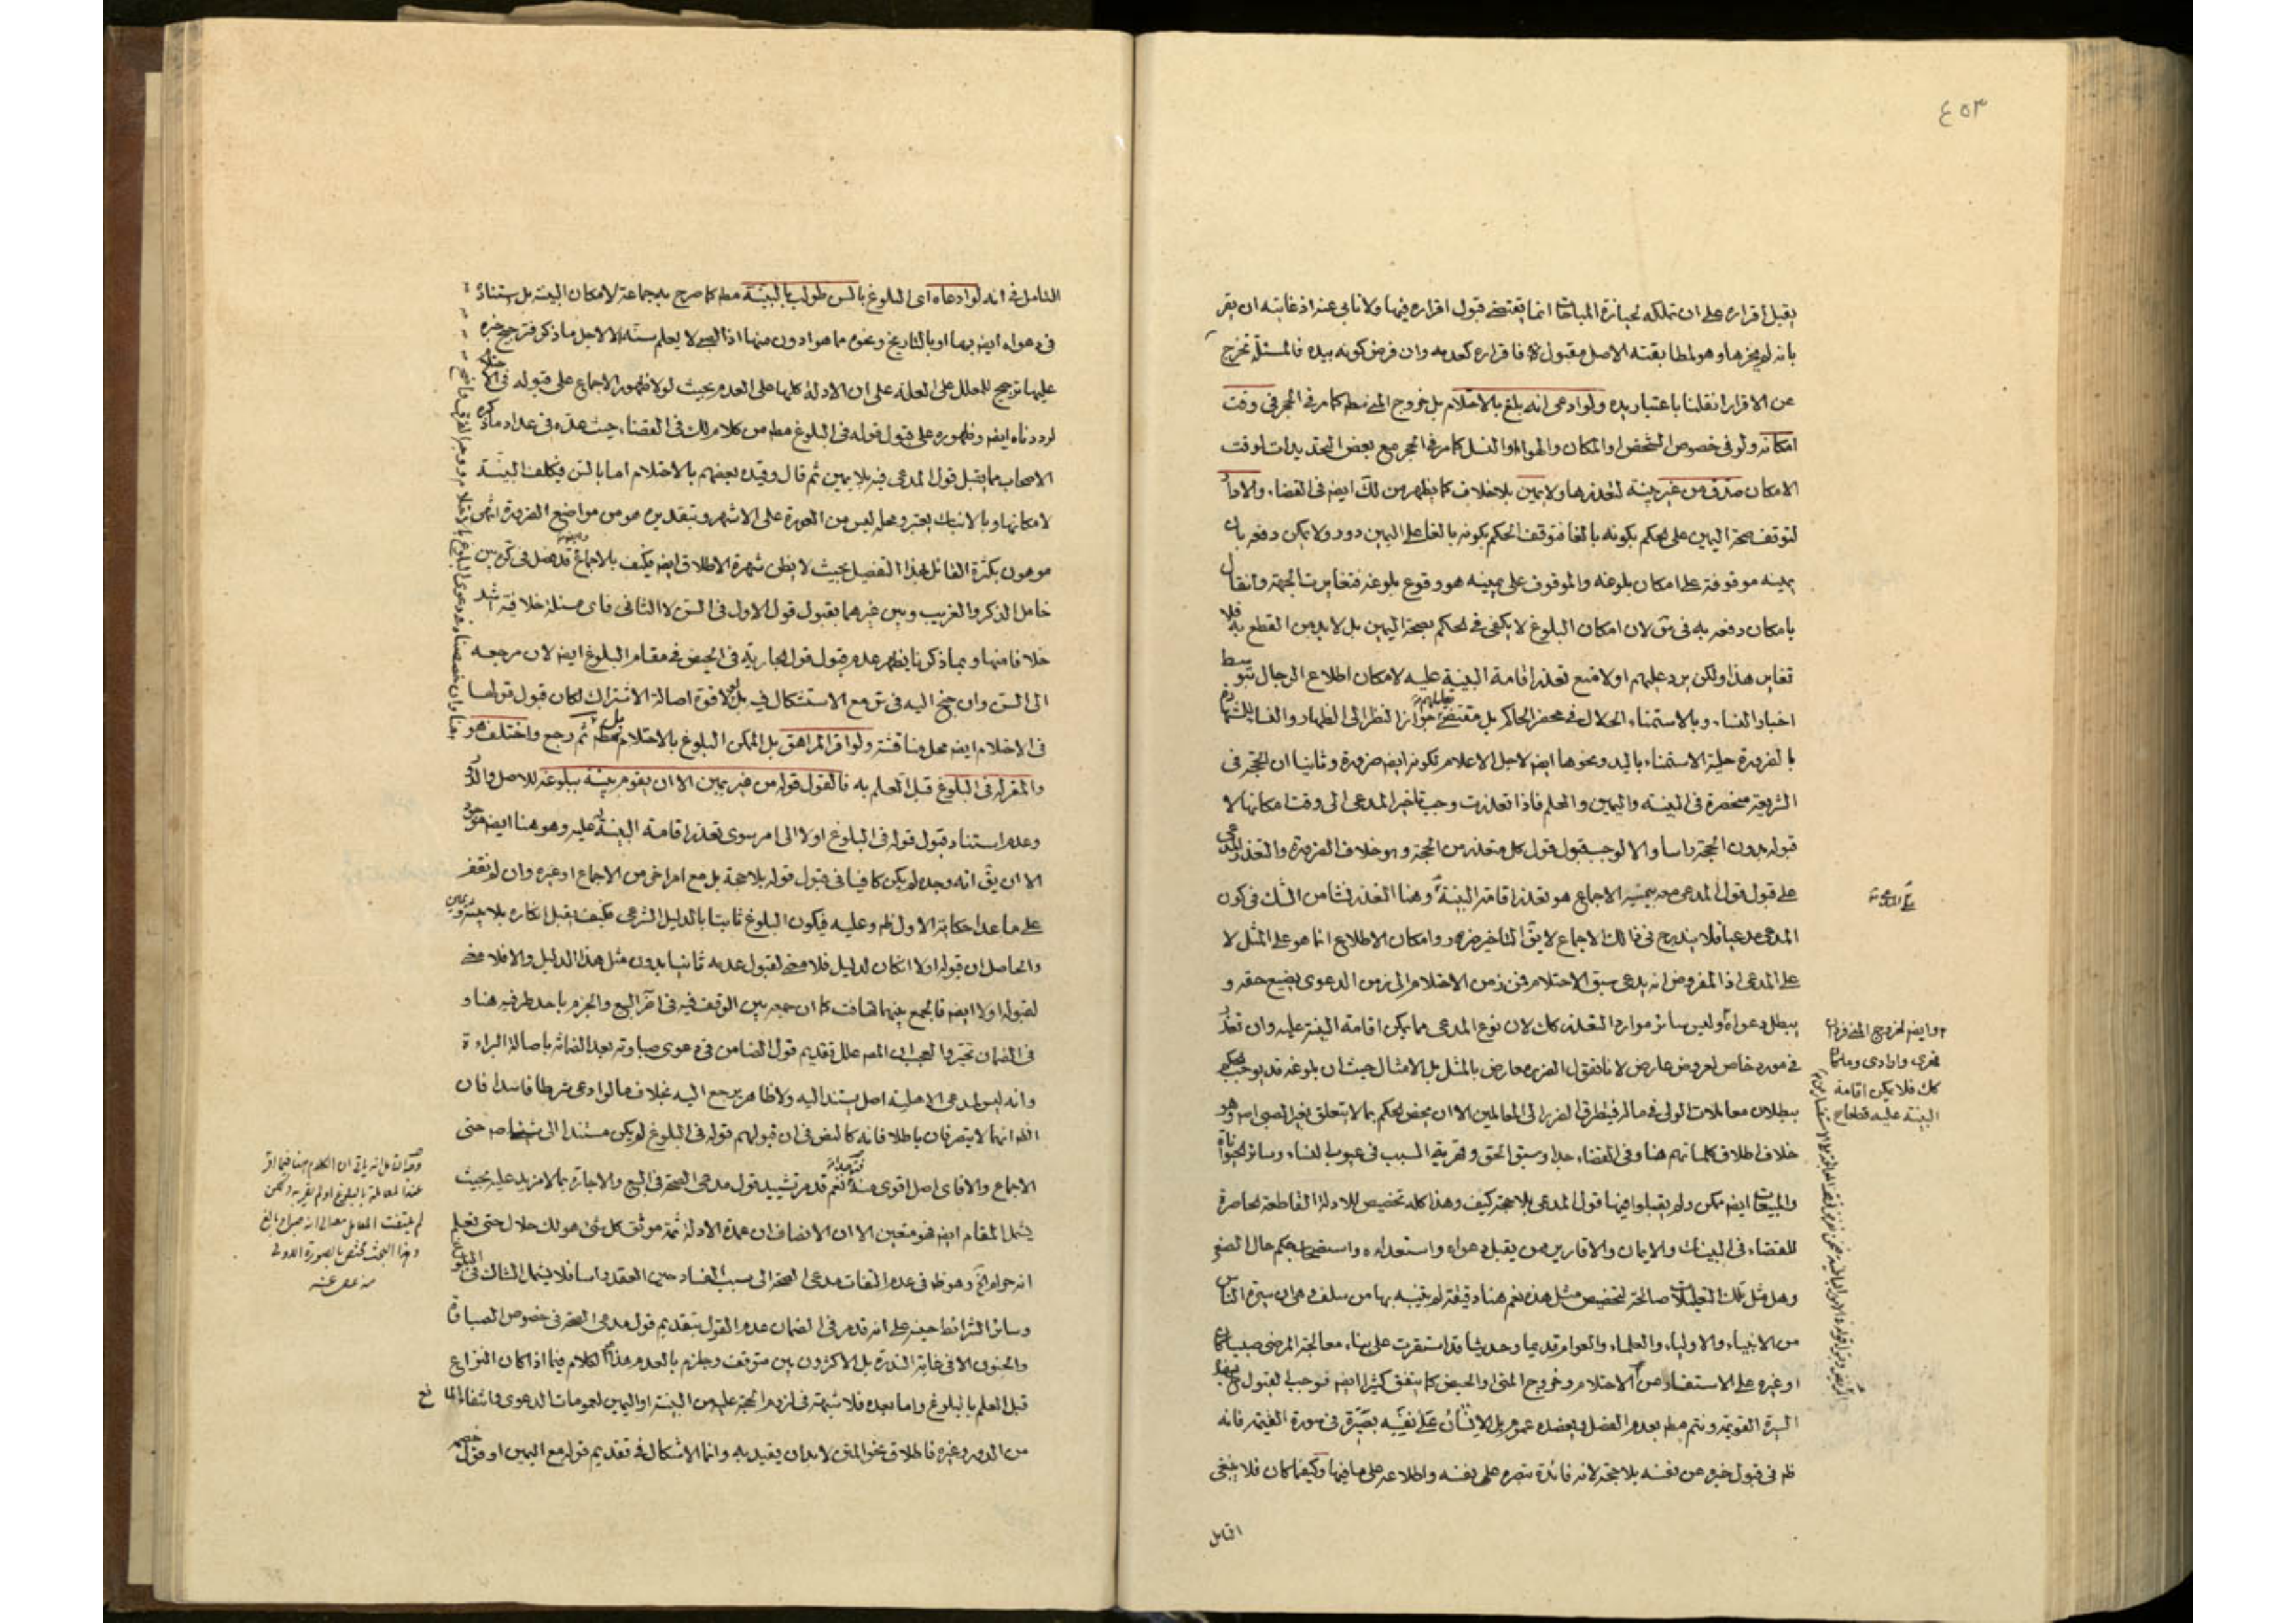 ٤٥٣
يقبل اقراره على ان تملكه لحيازة المباحات انما يقتضى قبول اقراره فيها ولانابى عنه اذ غايته ان يقر
بانه لم يحزها وهو لمطابقته الاصل مقبول فاقراره كعدمه وان فرض كونه بيده فالمسئلة تخرج
عن الاقرار انقلبنا باعتبار يده ولو ادعى انه بلغ بالاحتلام بل خروج المنى مطم كما مر فى الحجر فى وقت
امكانه ولو فى خصوص الشخص او المكان والهواء والنسل كما مر فى الحجر مع بعض التحديدات لوقت
الامكان صدق من غير بينه لتعذرها ولا يمين بلا خلاف كما يظهر من لك ايضا فى القضاء والا دار
لتوقف صحة اليمين على الحكم بكونه بالغا فتوقف الحكم بكونه بالغا على اليمين دور ولا يمكن دفعه بان
يمينه موقوفة على امكان بلوغه والموقوف على يمينه هو وقوع بلوغه فتغايرت الجهة وانقال
بامكان دفعه به فى س لان امكان البلوغ لا يكفى فى الحكم بصحة اليمين بل لابد من القطع به فلا
تغاير هذا ولكن يرد عليهم اولا منع تعذر اقامة البينة عليه لامكان اطلاع الرجال بتوسط
اخبار النساء وبالاستمناء الحلال فى محضر الحاكم بل مقتضى تعليلهم جواز النظر الى
بالضرورة حلية الاستمناء باليد ونحوها ايضا لاجل الاعلام لكونه ايضا ضرورة وثانيا ان الحجة فى
الشريعة منحصرة فى البينه واليمين والعلم فاذا تعذرت وجب تاخير المدعى الى وقت امكانها لا
قبوله بدون الحجة راسا والا لوجب قبول قول كل متعذر من الحجة وهو خلاف الضرورة والتعذر المدعى
على قبول قول المدعى معه بيمينه الاجماع هو تعذر اقامة البينة وهنا التعذر نشا من الشك فى كون
المدعى مدعيا فلا يندرج فى ذالك الاجماع لا يق التاخير ضرر وامكان الاطلاع انما هو على المثل لا
على المدعى اذ المفروض انه يدعى سبق الاحتلام فمن زمن الاحتلام الى زمن الدعوى يضيع حقه و
يبطل دعواه وليس سائر موارد التعذر كك لان نوع المدعى مما يمكن اقامة البينة عليه وان تعذر
فى مورد خاص لعروض عارض لانا نقول الضرر معارض بالمثل بل الامثال حيث ان بلوغه قد يوجب الحكم
ببطلان معاملات الولى فى ماله فيتطرق الضرر الى المعاملين الا ان يخص الحكم بما لا يتعلق بغير الصبى اصلا وهو
خلاف اطلاق كلماتهم هنا وفى القضاء
والمبيعات ايضا ممكن ولم يقبلوا فيها قول المدعى بلا حجة كيف وهذا كله تخصيص للادلة القاطعة الحاصرة
للقضاء فى البينات والايمان والاقارير ممن يقبل دعواه واستعداده واستصحاب حكم حال الصغر
وهل مثل تلك التعليلات صالحة لتخصيص مثل هذه نعم هنا دقيقة لم يتنبه بها من سلف وهى ان سيرة الناس
من الانبياء والاولياء والعلماء والعوام قديما وحديثا قد استقرت على بناء معالجة المرضى صبيا كان
او غيره على الاستفسار عن الاحتلام وخروج المنى والحيض كما يتفق كثيرا ايضا فوجب القبول
السيرة القويمة ونتم مطم بعدم الفصل ويعضده عموم بل الانسان على نفسه بصيرة فى سورة القيمة فانه
ظم فى قبول خبره عن نفسه بلا حجة لانه فائدة تبصره على نفسه واطلاعه على ما فيها وكيف كان فلا ينبغى
التامل
وايضا الخروج المنى فردان
كك فلا يمكن اقامة
البينة عليه قطعا
التامل فى انه لو ادعاه اى البلوغ بالسن طولب بالبينة مطم كما صرح به جماعة لامكان البينة بل
فى دعواه ايضا بها او بالتاريخ ونحوه مما هو ادون منها اذ الصبى لا يعلم سنه الا لاجل ما ذكر فترجيح خبره
عليها ترجيح للمعلل على العلة على ان الادلة كلها على العدم بحيث لولا ظهور الاجماع على قبوله فى الاحتلام
لرددناه ايضا وظهوره على قبول قوله فى البلوغ مطم من كلام لك فى القضاء حيث عده فى عداد ما ذكره
الاصحاب مما يقبل قول المدعى فيه بلا يمين ثم قال وقيده بعضهم بالاحتلام اما بالسن فيكلف البينة
لامكانها وبالانبات يعتبر ومحله ليس من العورة على الاشهر وبتقديره هو من مواضع الضرورة انتهى
موهون بكثرة القائل بهذا التفصيل بحيث لا يظن شهرة الاطلاق ايضا فكيف بالاجماع قد فصل فى كره بين
خامل الذكر والغريب وبين غيرهما بقبول قول الاول فى السن لا الثانى فاى مسئلة خلافية اشد
خلافا منها وبما ذكرنا يظهر عدم قبول قول الجارية فى الحيض فى مقام البلوغ ايضا لان مرجعه
الى السن وان جنح اليه فى س مع الاستشكال فيه بل لولا قوة اصالة الاشتراك لكان قبول قولها
فى الاحتلام ايضا محل مناقشة ولو اقر المراهق بل الممكن البلوغ بالاحتلام بل مطم ثم رجع واختلف هو
والمقر له فى البلوغ قبل العلم به فالقول قوله من غير يمين الا ان يقوم بينة ببلوغه للاصل والدور
وعدم استناد قبول قوله فى البلوغ اولا الى امر سوى تعذر اقامة البينة عليه وهو هنا ايضا موجود
الا ان يق انه وحده لم يكن كافيا فى قبول قوله بلا حجة بل مع امر اخر من الاجماع او غيره وان لم نعثر
على ما عدا حكاية الاول ظم وعليه فيكون البلوغ ثابتا بالدليل الشرعى فكيف يقبل انكاره بلا بينة ويمين
والحاصل ان قوله اولا ان كان لدليل فلا معنى لقبول عدمه ثانيا بدون مثل هذا الدليل والا فلا معنى
لقبوله اولا ايضا فالجمع بينهما تهافت كما ان جمعه بين الوقف فيه فى اخر البيع والجزم باحد طرفيه هنا و
فى الضمان تحير والعجب ان المصم علل تقديم قول الضامن فى دعوى صباوته بعد الضمانه باصالة البراءة
وانه ليس لمدعى الاهلية اصل يستند اليه ولا ظاهر يرجع اليه بخلاف ما لو ادعى شرطا فاسدا فان
الظم انهما لا يتصرفان باطلا فانه كالنص فى ان قبولهم قوله فى البلوغ لم يكن مستندا الى شئ اصم حتى
الاجماع والا فاى اصل اقوى منه نعم قد مر تشييد قول مدعى الصحة فى البيع والاجارة بما لا مزيد عليه بحيث
يشمل المقام ايضا فهو متعين الا ان الانصاف ان عمدة الادلة ثمة موثق كل شئ هو لك حلال حتى تعلم
انه حرام الخ وهو ظم فى عدم التفات مدعى الصحة الى سبب الفساد حين العقد راسا فلا يشمل الشاك فى البلوغ
وسائر الشرائط حينه على انه قد مر فى الضمان عدم القول بتقديم قول مدعى الصحة فى خصوص الصباوة
والجنون الا فى غاية الندرة بل الاكثرون بين متوقف وجازم بالعدم هذا الكلام فيما اذا كان النزاع
قبل العلم بالبلوغ واما بعده فلا شبهة فى لزوم الحجة عليه من البينة او اليمين لعمومات الدعوى وانتفاء المانع
من الدور وغيره فاطلاق نحو المتن لابد ان يقيد به وانما الاشكال فى تقديم قوله مع اليمين او قول خصمه
عند المعاملة بالبلوغ او لم يقر به ولكن
وهذا البحث مختص بالصورة الاولى
منه عفى عنه